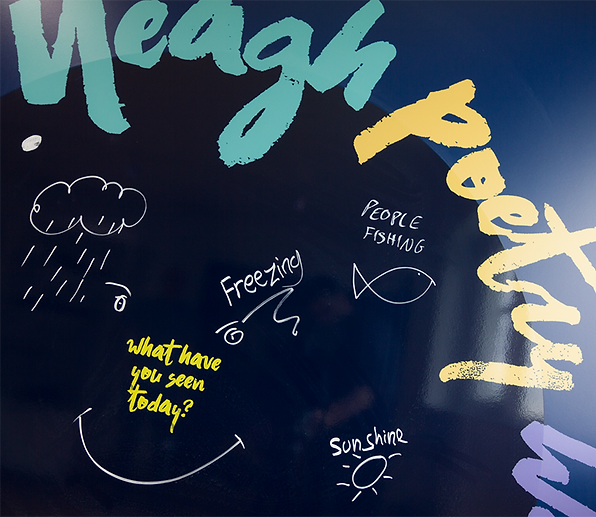 Neagh
poetry
PEOPLE
FISHING
Freezing
What have
you seen
today?
Sunshine